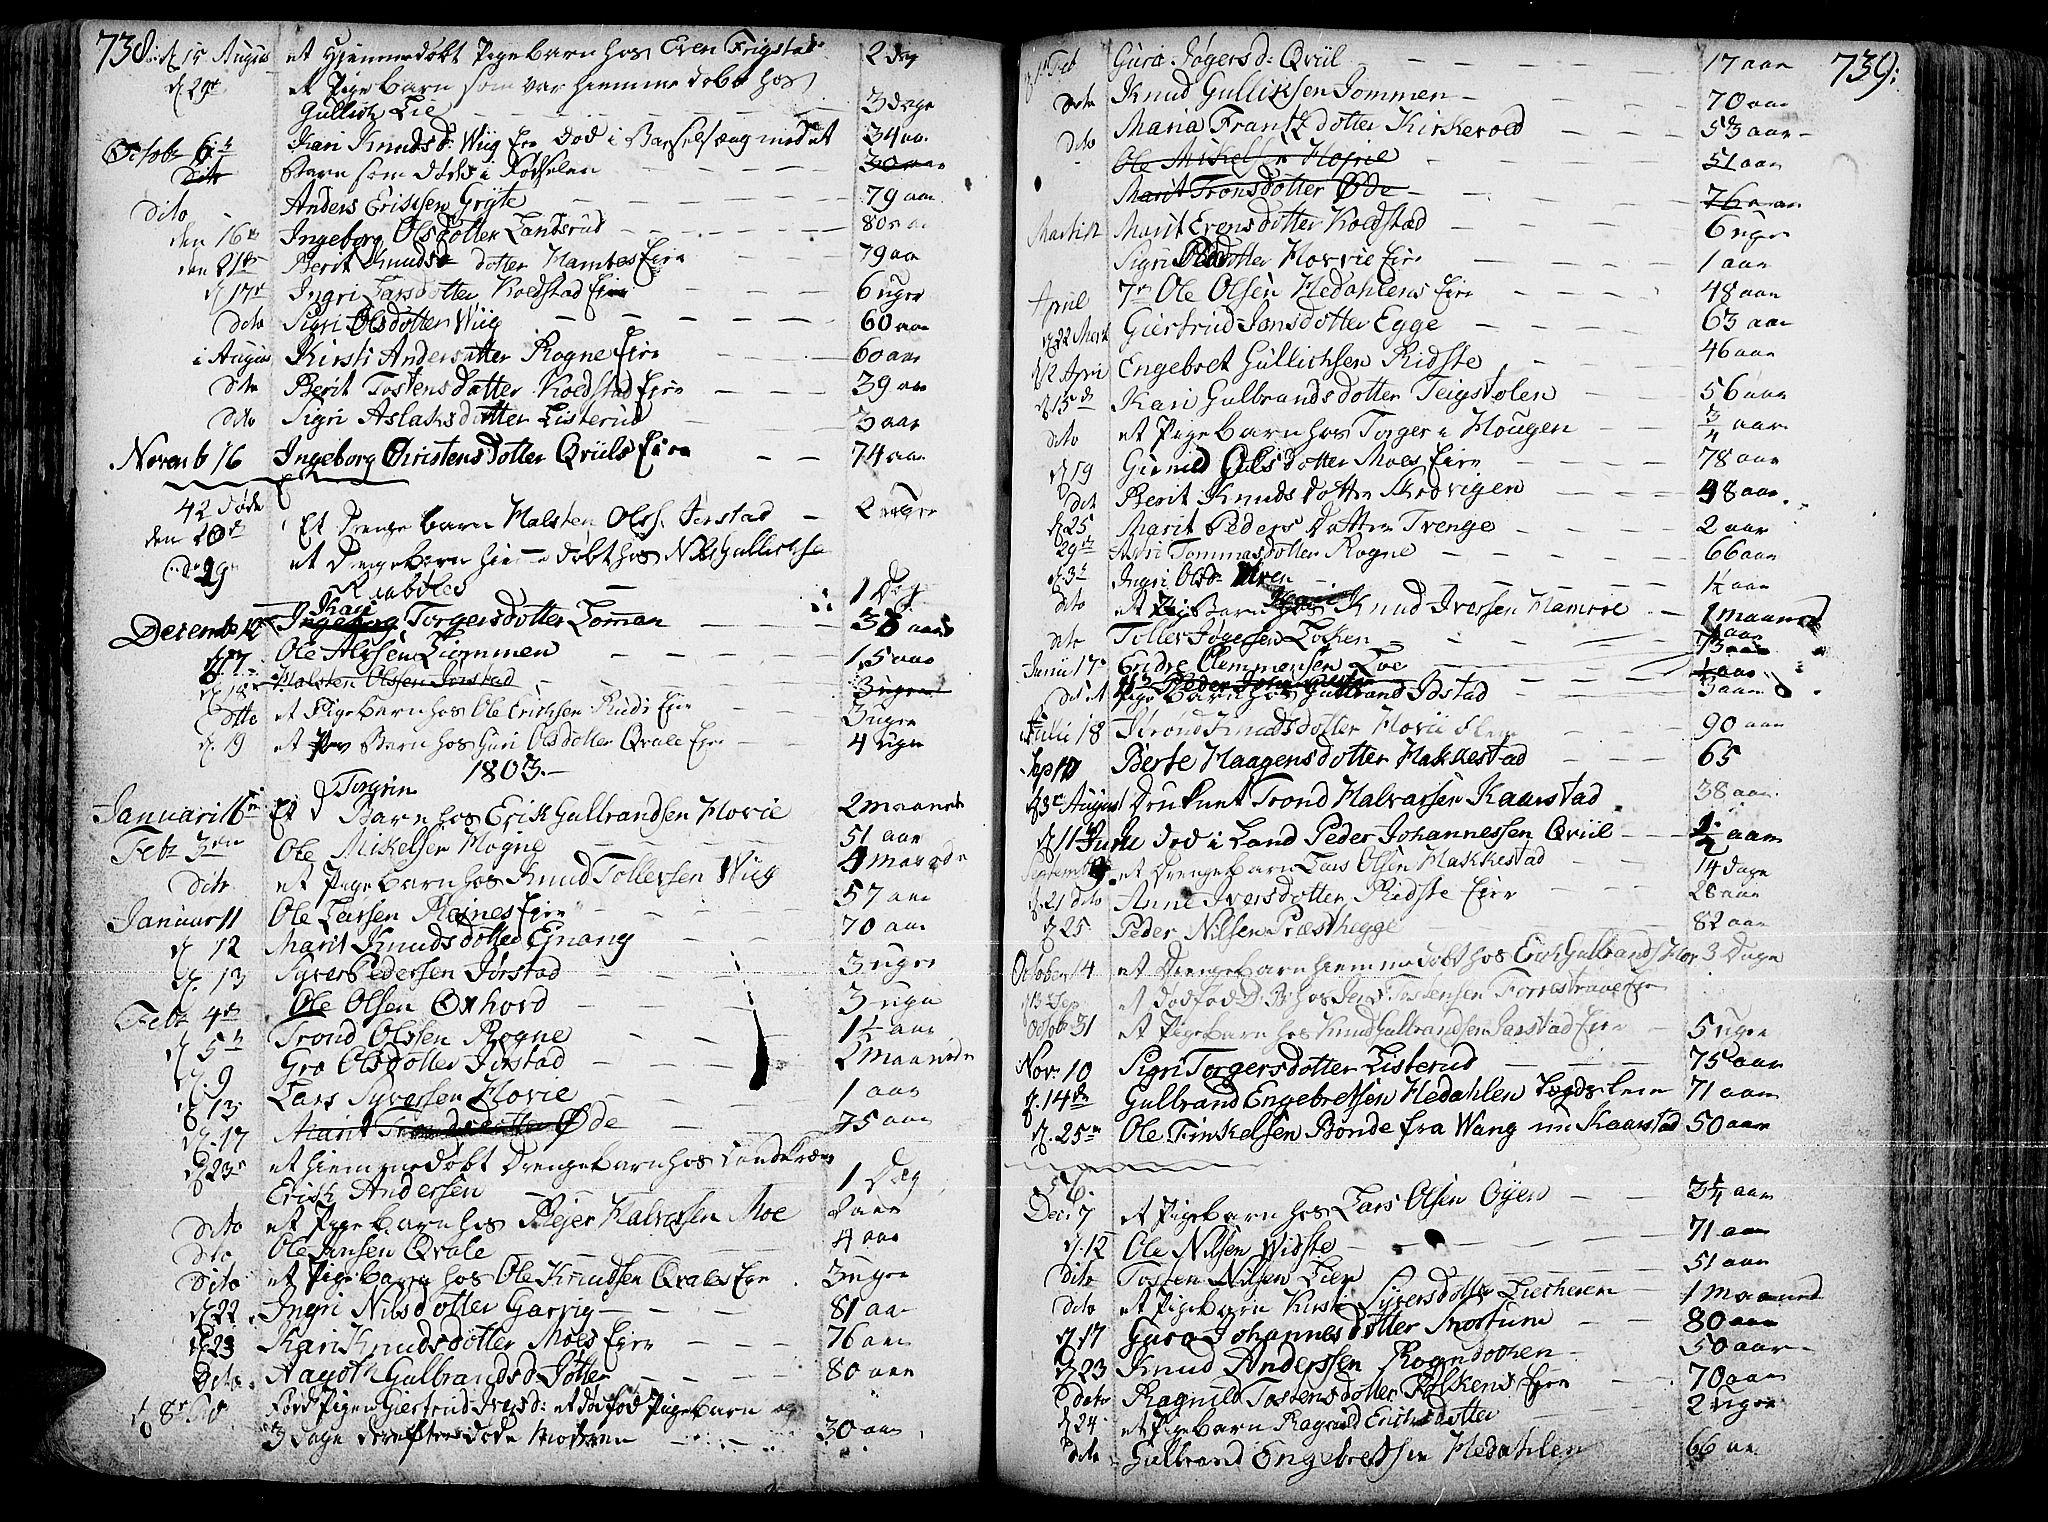 738: d 15 Augus et Hiemmedøbt Pigebarn hos Even Frigstad 2 dag
d 29de et Pige barn som var hiemme døbt hos
Gullich Lie 3 dage
Octobr 6te Kari Knudsd: Wiig Eie død i Barselseng med et 34 aar
dito Barn som døde i Fødselen 30 aar
dito Anders Erichsen Gryte 79 aar
den 16de Ingeborg Olsdotter Landsrud 80 aar
den 21de Berit Knudsdotter Hambes Eie 79 aar
d 17de Ingri Larsdotter Koldstad Eie 6 uger
dito Sigri Olsdotter Wiig 60 aar
i Augus Kirsti Andersdotter Rogne Eie 60 aar
dito Berit Tostensdatter Koldstad Eie 39 aar
dito Sigri Aslaksdotter Listerud 3 aar
Novemb 16 Ingeborg Christensdotter Qviils Eie 74 aar
42 døde
den 20de Et Drenge barn Halsten Olss: Jørstad 2 uger
d 29 et Drengebarn hiemmedøbt hos Nils Gullichse
Raabøles 1 Dag
Kari
Decemb 12 Ingeborg Torgersdotter Loman 38 aar
d 17 Ole Alfsen Tiommen 15 aar
d 18 Halsten Olssen Jørstad 3 uger
ditto et Pigebarn hos Ole Erichsen Ruds Eie 3 uger
d. 19 et Barn hos Guri Olsdotter Qvale Eie 4 uger
1803.
Torgrim
Januari 16 Et Barn hos Erik Gulbrandsen Hovie 2 maaneder
Feb 3die Ole Mikelsen Hogne 51 aar
dito et Pigebarn hos Knud Tollefsen Wiig 4 maaneder
Januar 11 Ole Larsen Reines Eie 57 aar
d 12 Marit Knudsdotter Ejnang 70 aar
d. 13 Syver Pedersen Jørstad 3 uger
Feb 4de Ole Olsen Oxhovd 3 uger
d 5te Trond Olsen Rogne 1½ aar
d. 9 Gro Olsdotter Jørstad 2 maaneder
d 13 Lars Syversen Hovie 1 aar
d. 17 Marit Tronsdotter Øde 75 aar
d 23de et hiemmedøbt Drengebarn hos
Erich Andersen 1 Dag
dito et Pige barn hos Rejer Halvorsen Moe 2 aar
dito Ole Jensen Qvale 4 aar
dito et Pigebarn hos Ole Knudsen Qvales Eie 3 uger
d 22 Ingri Nilsdotter Garvig 81 aar
d 23 Kari Knudsdotter Moes Eie 76 aar
dito Aagoth Gulbrandsd: Jøtter 80 aar
d 8de Fød Pigen Giertrud Iversd: et dødfød Pigebarn og
3 dage derefter døde Moderen 30 aar
739:
Feb Gura Jøgersd: Qviil 17 aar
dito Knud Gulliksen Jommen 70 aar
dito Maria Frantzdotter Kirkevold 53 aar
Ole Mikelsen Hogne 51 aar
Marit Tronsdotter Øde 76 aar
Marti Marit Evensdotter Koldstad 6 uger
Sigri Olsdotter Hovie Eie 1 aar
April 7de Ole Olsen Hedahlens Eie 48 aar
d 22 Mart Giertrud Jonsdotter Egge 63 aar
d 12 April Engebret Gullichsen Ridste 46 aar
d 15de Kari Gulbrandsdotter Teigstølen 56 aar
dito et Pigebarn hos Torger i Hougen ¾ aar
d 19 Gunild Olsdotter Moes Eie 78 aar
dito Berit Knudsdotter Skovigen 48 aar
d 25 Marit Peders Datter Trenge 2 aar
29de Astri Tommasdotter Rogne 66 aar
d. 3de Ingri Olsd: 1¼ aar
dito et Pigebarn hos Knud Iversen Hamroe 1 maaned
dito Tollef Jøgersen Løcken
Junii 17 Endre Clemmensen Loe 73 aar
dito Pige barn hos Gulbrand Ildstad 3 aar
Julii 18 Jørond Knudsdotter Hovii 90 aar
Sep 10 Berte Haagensdotter Hakkestad 65
d 3de August Druknet Trond Halvarsen Kaarstad 38 aar
d 11 June død i Land Peder Johannessen Qviil ½ aar
September 9 et Drengebarn Lars Olsen Hakkestad 14 Dage
d. 21 dito Anne Iversdotter Ridste Eie 28 aar
d 25 Peder Nilsen Præsthegge 82 aar
October 14 et Drengebarn hiemmedøbt hos Erik Gulbrands: Hov 3 Dage
d 13 Sep et dødfød D: B: hos Jens Tostensen Forrestrane Eie
Octob 31 et Pigebarn hos Knud Gulbrandsen Jarstad Eie 5 uger
Nov. 10 Sigri Torgersdotter Listerud 75 aar
d. 14de Gulbrand Engebretsen Hedahlen Logdslem 71 aar
d. 25de Ole Finkelsen Bonde fra Wang nu Kaarstad 50 aar
56.
Dec: 7 et Pigebarn hos Lars Olsen Øyen 3¼ aar
d. 12 Ole Nilsen Widste 71 aar
dito Tosten Nilsen Lien 51 aar
dito et Pigebarn Kirsti Syversdotter Liehenen 1 maaned
d. 17 Gura Johannesdotter Snortum 80 aar
d 23 Knud Anderssen Rogndokken 50 aar
dito Ragnild Tostensdotter Folkens Eie 70 aar
d 24 et Pigebarn Ragnild Erichsdotter 2 uger
dito Gulbrand Engebretsen Hedahlen 66 aar